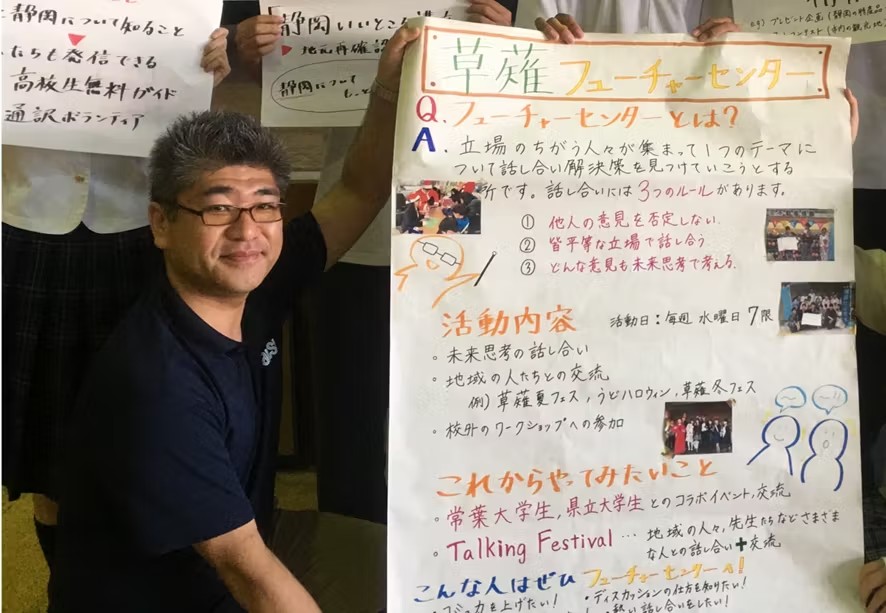 静岡について知ること
たちも発信できる
高校生無料ガイド
通訳ボランティア
静岡いいとこ
地元再確認
静岡について
もっと
草薙 フューチャーセンター
Q. フューチャーセンターとは?
A. 立場のちがう人々が集まって1つのテーマに
ついて話し合い解決策を見つけていこうとする
所です。話し合いには3つのルールがあります。
① 他人の意見を否定しない.
② 皆平等な立場で話し合う.
③ どんな意見も未来思考で考える.
活動内容 活動日:毎週 水曜日 7限
・未来思考の話し合い
・地域の人たちとの交流
例) 草薙夏フェス, うどハロウィン, 草薙冬フェス
・校外のワークショップへの参加
これからやってみたいこと
・常葉大学生, 県立大学生とのコラボイベント, 交流
・Talking Festival … 地域の人々, 先生たちなどさまざま
な人との話し合い+交流
こんな人はぜひ フューチャーセンターへ!
・コミュ力を上げたい!
・ディスカッションの仕方を知りたい!
話し合いをしたい!